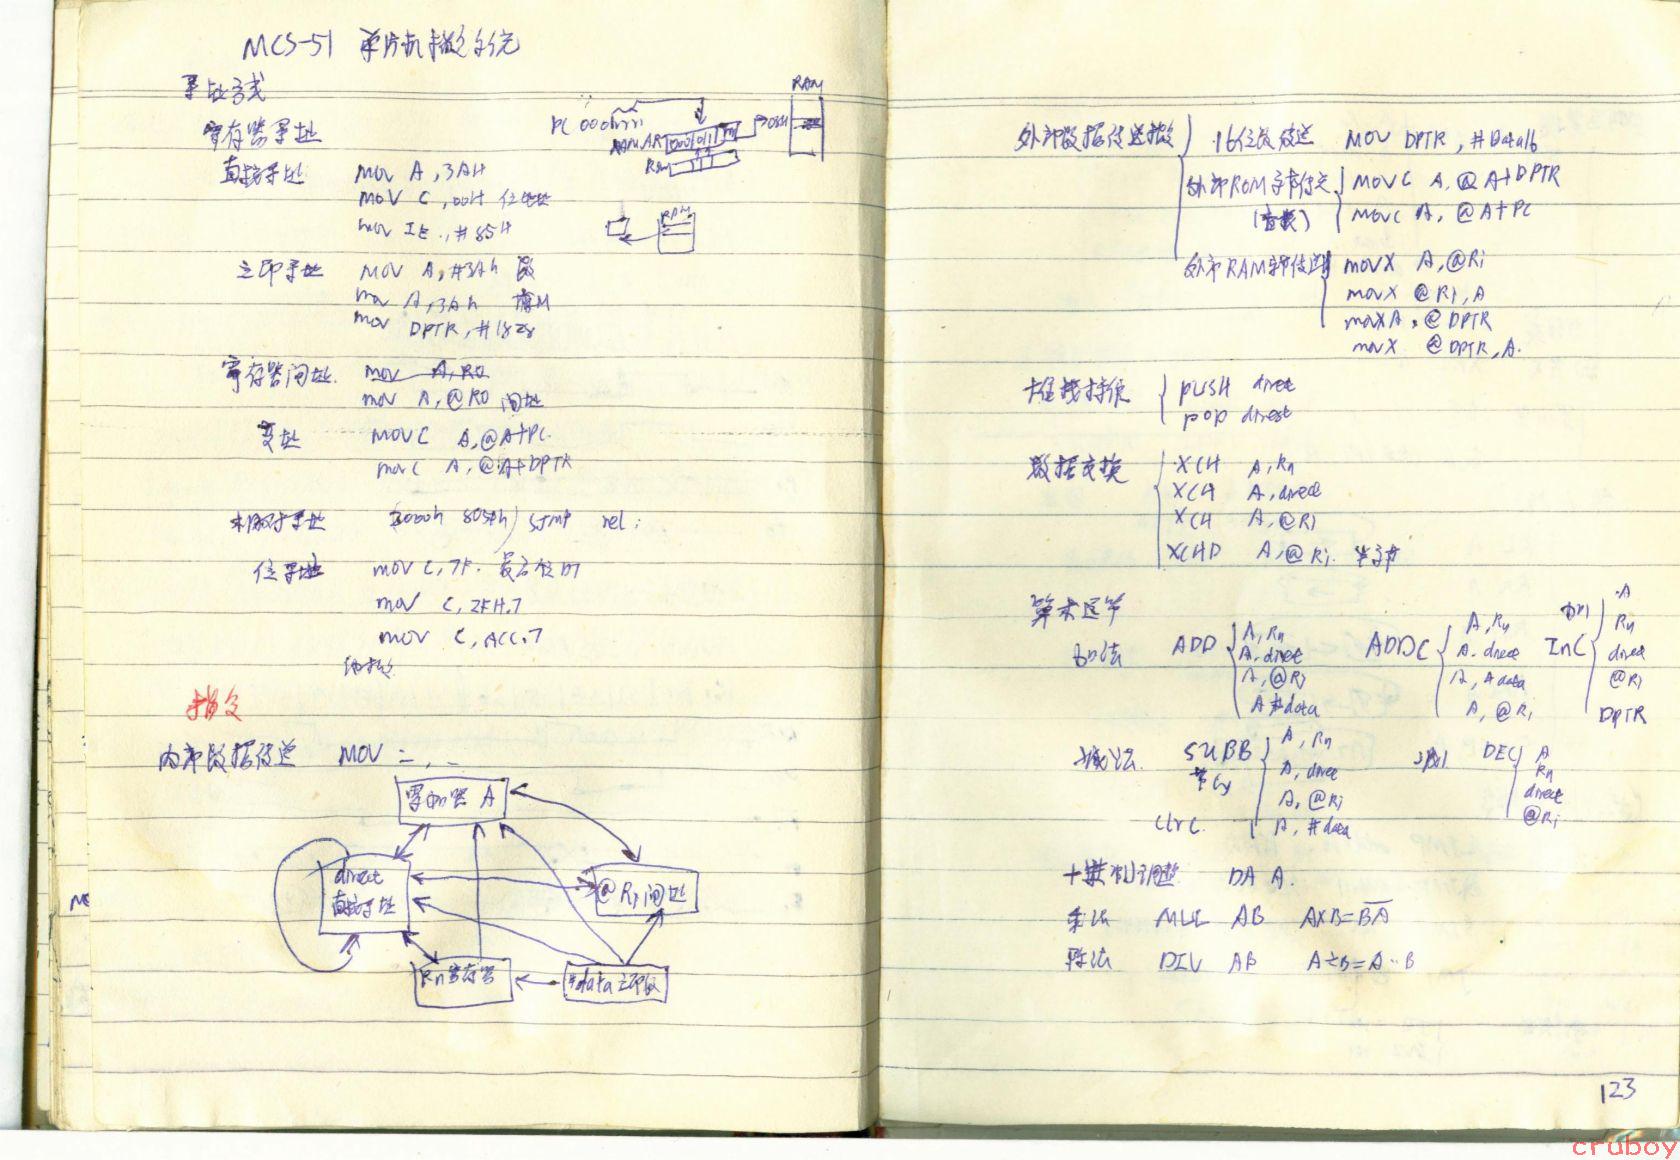 MCS-51 单片机指令系统
寻址方式
寄存器寻址
直接寻址 MOV A,3AH
MOV C,00H 位地址
mov IE,#85H
立即寻址 MOV A,#3Ah 数
mov A,3Ah
mov DPTR,#1828
寄存器间址 mov A,R0
mov A,@R0 间址
变址 MOVC A,@A+PC
movC A,@A+DPTR
相对寻址 SJMP rel;
位寻址 MOV C,7F. 最高位07
mov C,2FH.7
mov C,ACC.7
PC 000
RAM AR
RAM
RAM
指令
内部数据传送 MOV
累加器 A
direct
直接寻址
@Ri间址
Rn寄存器
#data立即数
外部数据传送指令
16位数传送 MOV DPTR,#Data16
外部ROM字节传送 MOVC A,@A+DPTR
(查表) MOVC A,@A+PC
外部RAM字节传送 MOVX A,@Ri
MOVX @Ri,A
movX A,@DPTR
movX @DPTR,A.
堆栈操作 PUSH direct
POP direct
数据交换 XCH A,Rn
XCH A,direct
XCH A,@Ri
XCHD A,@Ri. 半字节
算术运算
加法 ADD A,Rn
A,direct
A,@Ri
A #data
ADDC A,Rn
A,direct
A,#data
A,@Ri
加1 INC A
Rn
direct
@Ri
DPTR
减法. SUBB A,Rn
带Cy A,direct
A,@Ri
Clr C. A,#data
减1 DEC A
Rn
direct
@Ri
十进制调整 DA A.
乘法 MUL AB A×B=BA
除法 DIV AB A÷B=A··B
123
cruboy